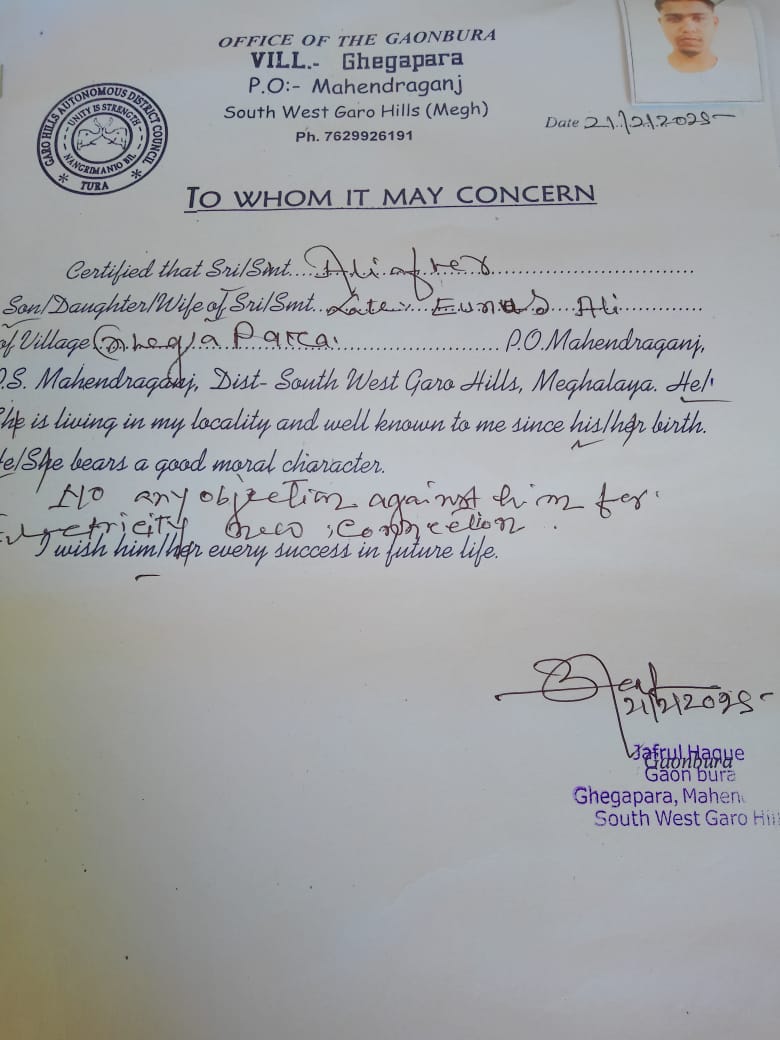 OFFICE OF THE GAONBURA
VILL.- Ghegapara
P.O:- Mahendraganj
South West Garo Hills (Megh)
Ph. 7629926191
GARO HILLS AUTONOMOUS DISTRICT COUNCIL
UNITY IS STRENGTH
NANGRIMANIO BIL
TURA
Date 21/2/2025
TO WHOM IT MAY CONCERN
Certified that Sri/Smt....Ali
Son/Daughter/Wife of Sri/Smt. Late. Eunus Ali
of Village Parca. P.O.Mahendraganj,
.S. Mahendraganj, Dist- South West Garo Hills, Meghalaya. He/
She is living in my locality and well known to me since his/her birth.
e/She bears a good moral character.
No any objection against him for
Electricity new connection.
I wish him/her every success in future life.
21/2/2025
Jafrul Haque
Gaonbura
Gaon bura
Ghegapara, Mahen
South West Garo Hil